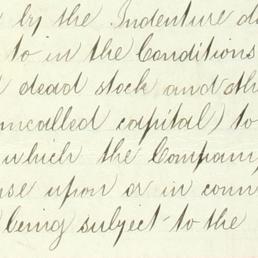 by the Indenture
to in the Conditions
dead stock and
uncalled capital) to
which the Company
upon or in
being subject to the